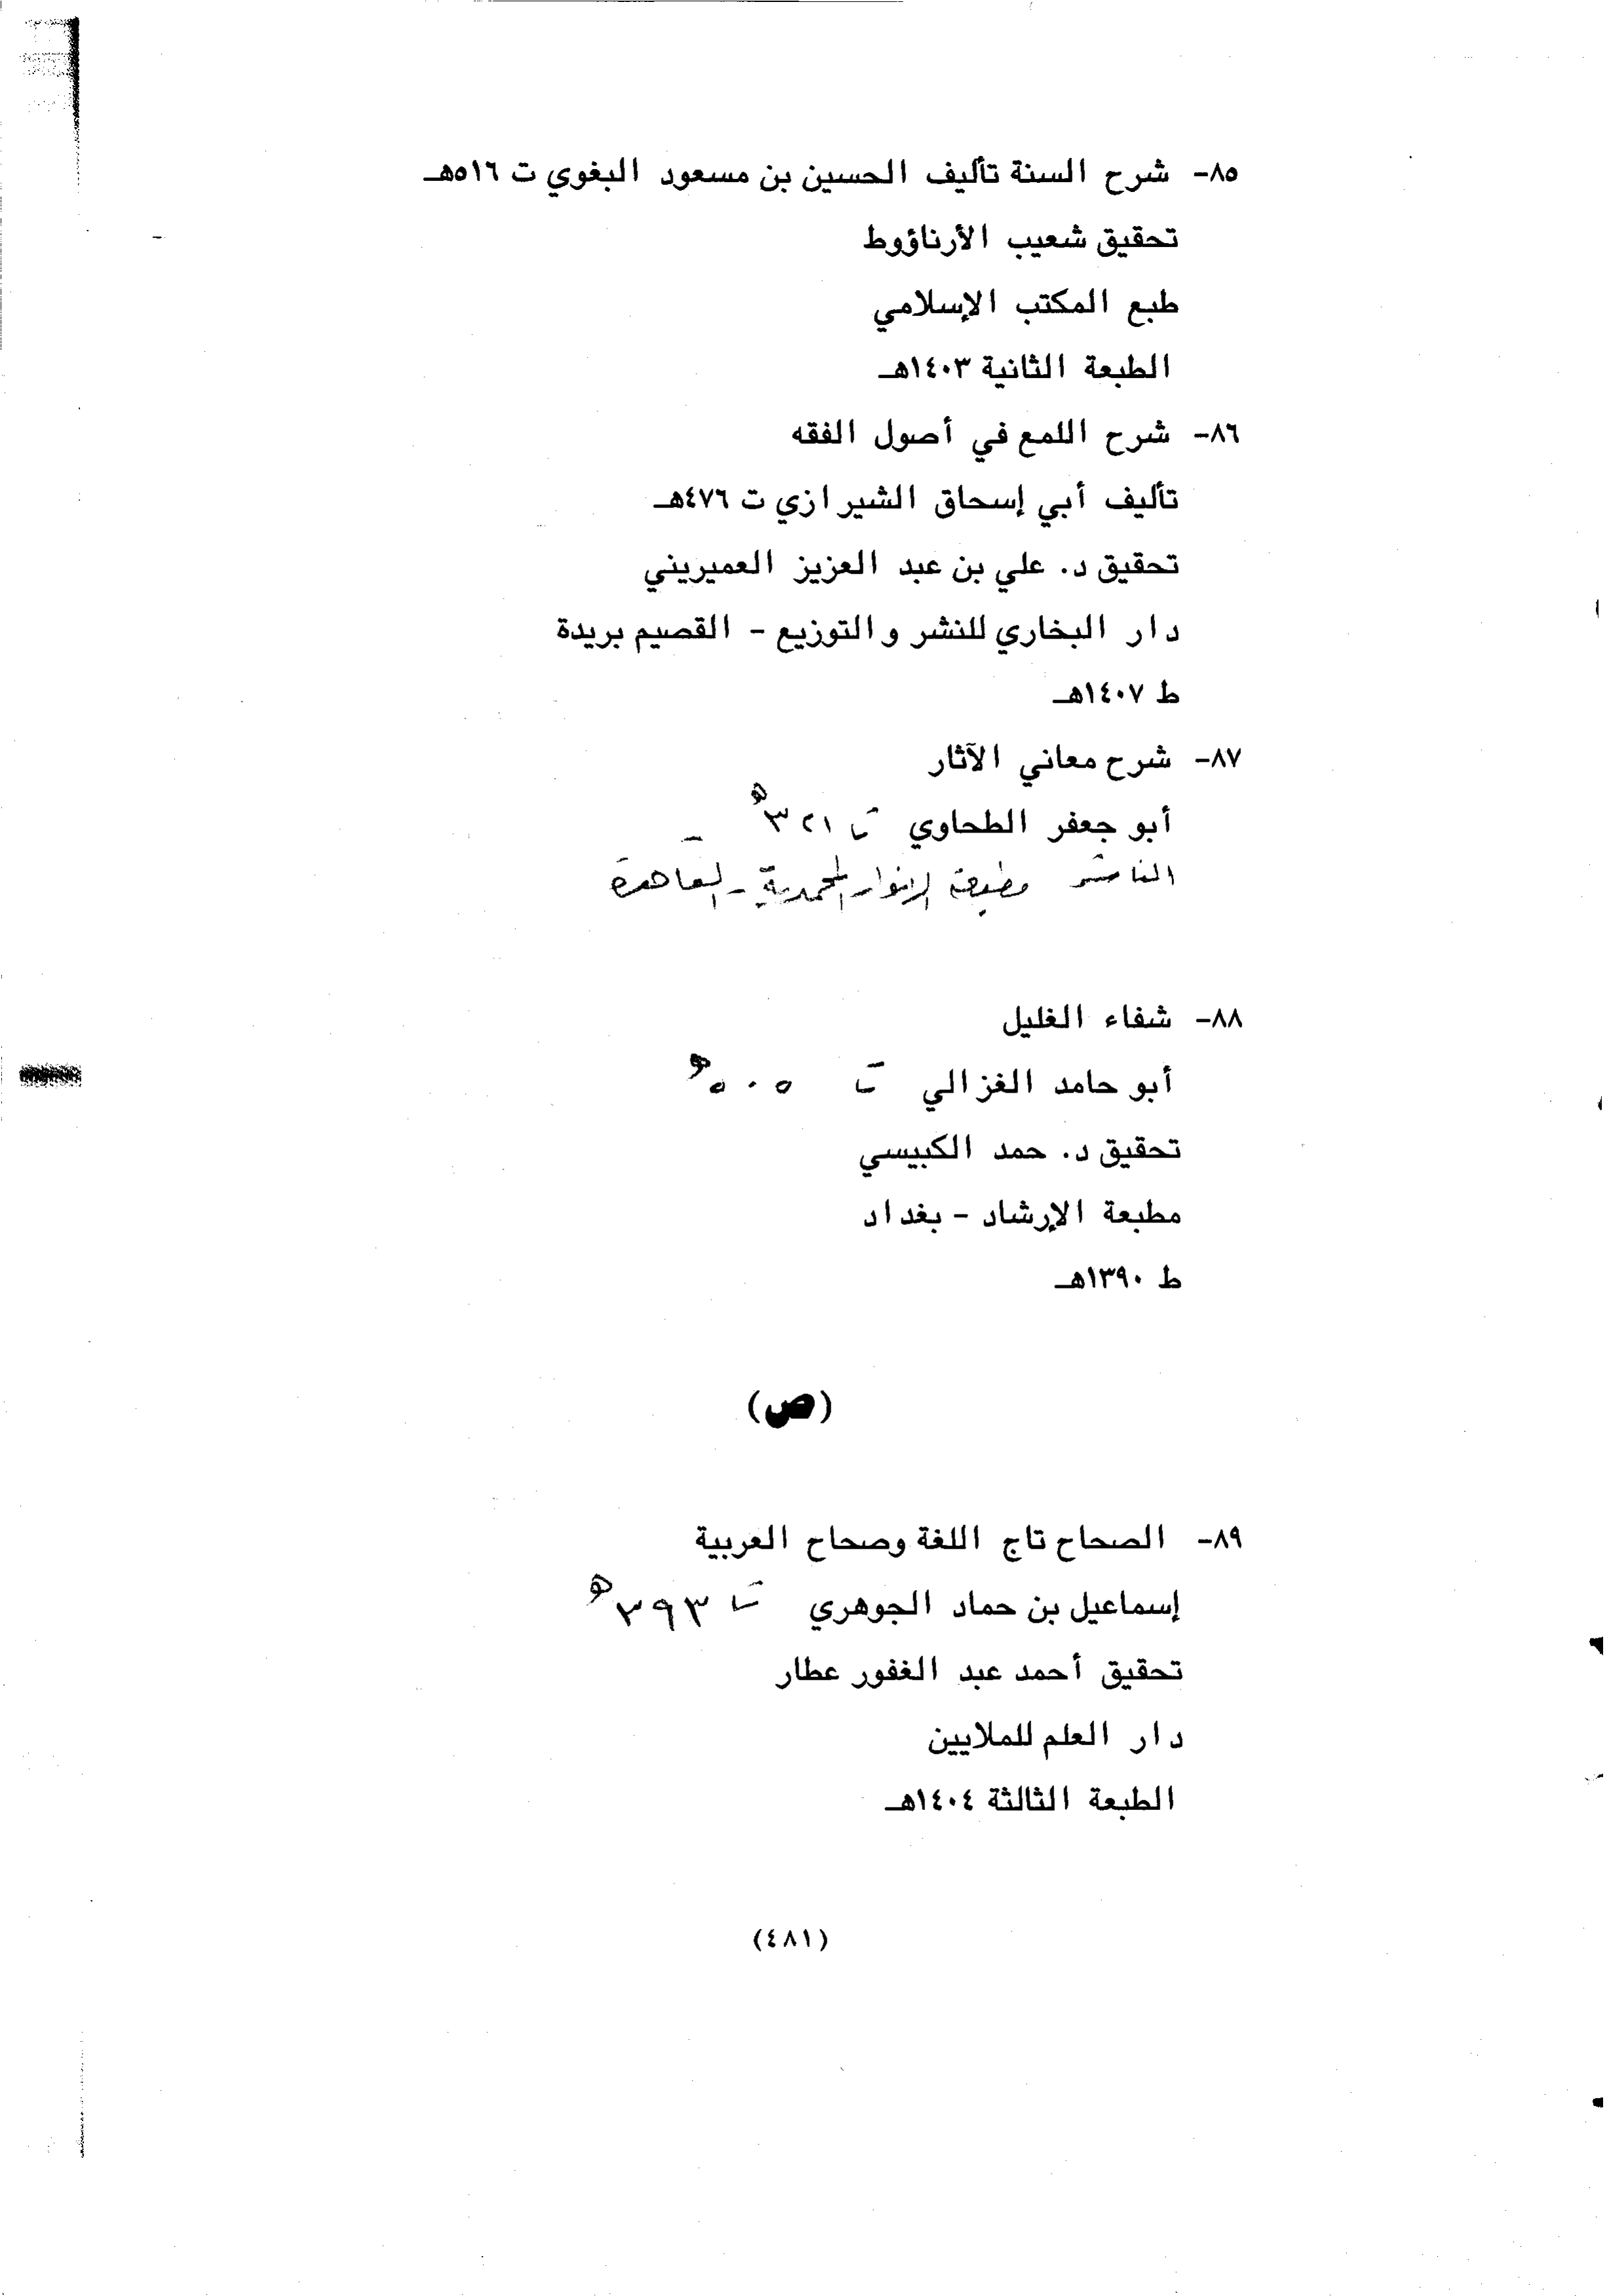 ٨٥- شرح السنة تأليف الحسين بن مسعود البغوي ت ٥١٦هـ
تحقيق شعيب الأرناؤوط
طبع المكتب الإسلامي
الطبعة الثانية ١٤٠٣هـ
٨٦- شرح اللمع في أصول الفقه
تأليف أبي إسحاق الشيرازي ت ٤٧٦هـ
تحقيق د. علي بن عبد العزيز العميريني
دار البخاري للنشر والتوزيع - القصيم بريدة
ط ١٤٠٧هـ
٨٧- شرح معاني الآثار
أبو جعفر الطحاوي ت ٣٢١هـ
الناشر مطبعة الأنوار المحمدية - القاهرة
٨٨- شفاء الغليل
أبو حامد الغزالي ت ٥٠٥هـ
تحقيق د. حمد الكبيسي
مطبعة الإرشاد - بغداد
ط ١٣٩٠هـ
(ص)
٨٩- الصحاح تاج اللغة وصحاح العربية
إسماعيل بن حماد الجوهري ت ٣٩٣هـ
تحقيق أحمد عبد الغفور عطار
دار العلم للملايين
الطبعة الثالثة ١٤٠٤هـ
(٤٨١)